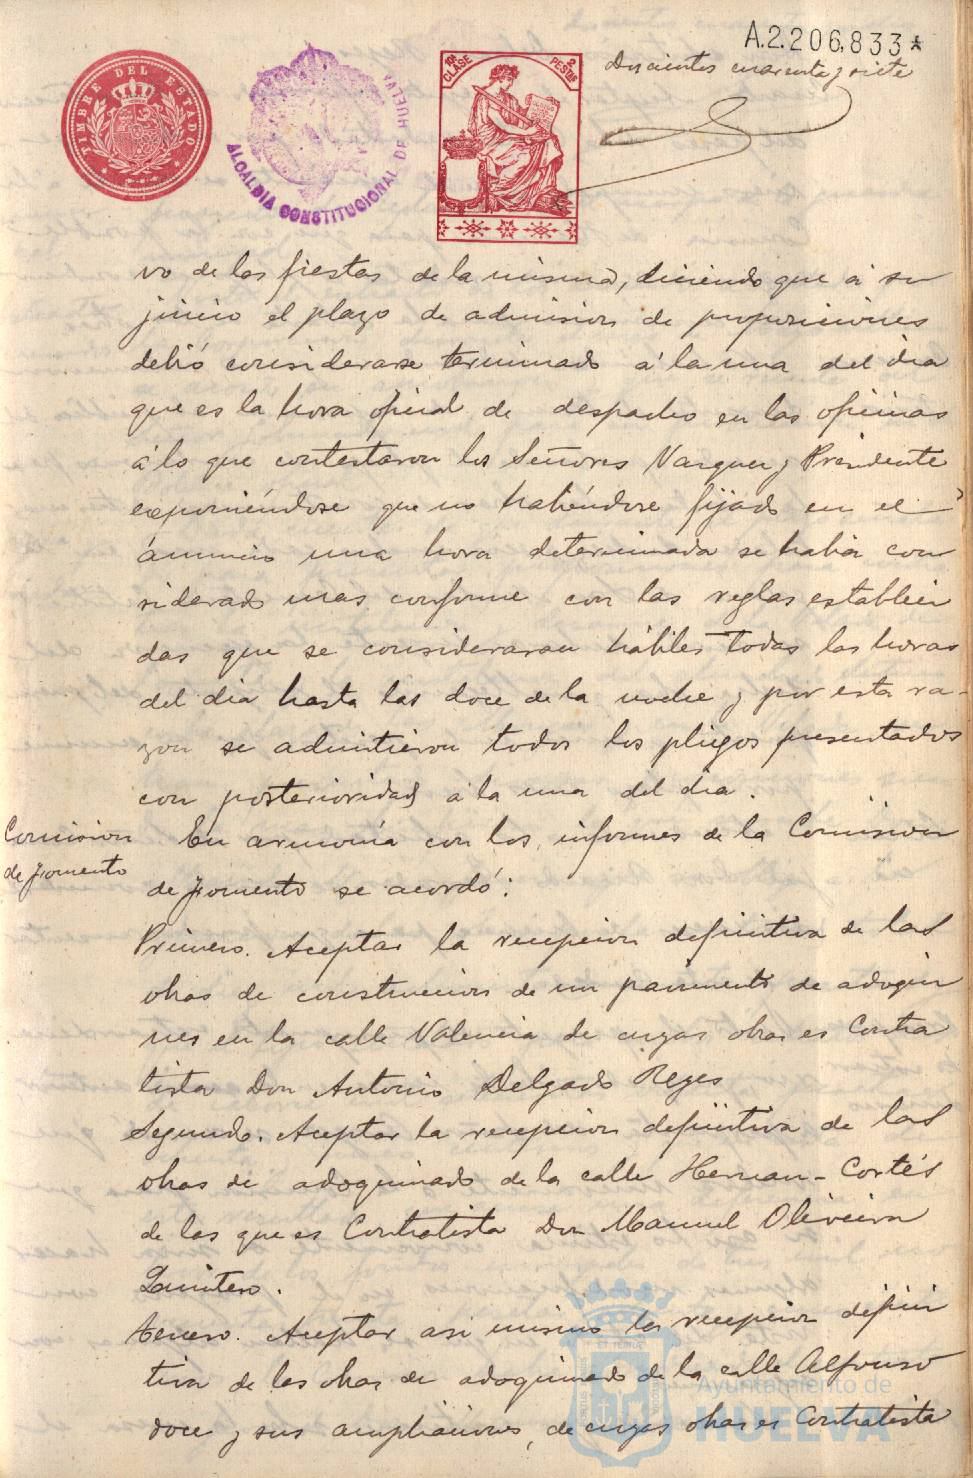 A.2.206,833*
Doscientos cuarenta y siete
TIMBRE DEL ESTADO
ALCALDIA CONSTITUCIONAL DE HUELVA
10ª CLASE
2 PESTAS
vo de las fiestas de la misma, diciendo que á su
juicio el plazo de admision de proposiciones
debió considerarse terminado á la una del dia
que es la hora oficial de despacho en las oficinas
á lo que contestaron los Señores Vazquez y Presidente
exponiéndose que no habiéndose fijado en el
ánuncio una hora determinada se habia con
siderado mas conforme con las reglas estableci
das que se consideraran hábiles todas las horas
del dia hasta las doce de la noche y por esta ra-
zon se admitieron todos los pliegos presentados
con posterioridad á la una del dia.
Comision
de fomento
En armonía con los informes de la Comision
de fomento se acordó:
Primero. Aceptar la recepcion definitiva de las
obras de construccion de un pavimento de adoqui
nes en la calle Valencia de cuyas obras es Contra
tista Don Antonio Delgado Reyes
Segundo. Aceptar la recepcion definitiva de las
obras de adoquinado de la calle Hernan-Cortés
de las que es Contratista Don Manuel Oliveira
Quintero.
Tercero. Aceptar asi mismo la recepcion defini
tiva de las obras de adoquinado de la calle Alfonso
doce y sus ampliaciones, de cuyas obras es Contratista
Ayuntamiento de
HUELVA